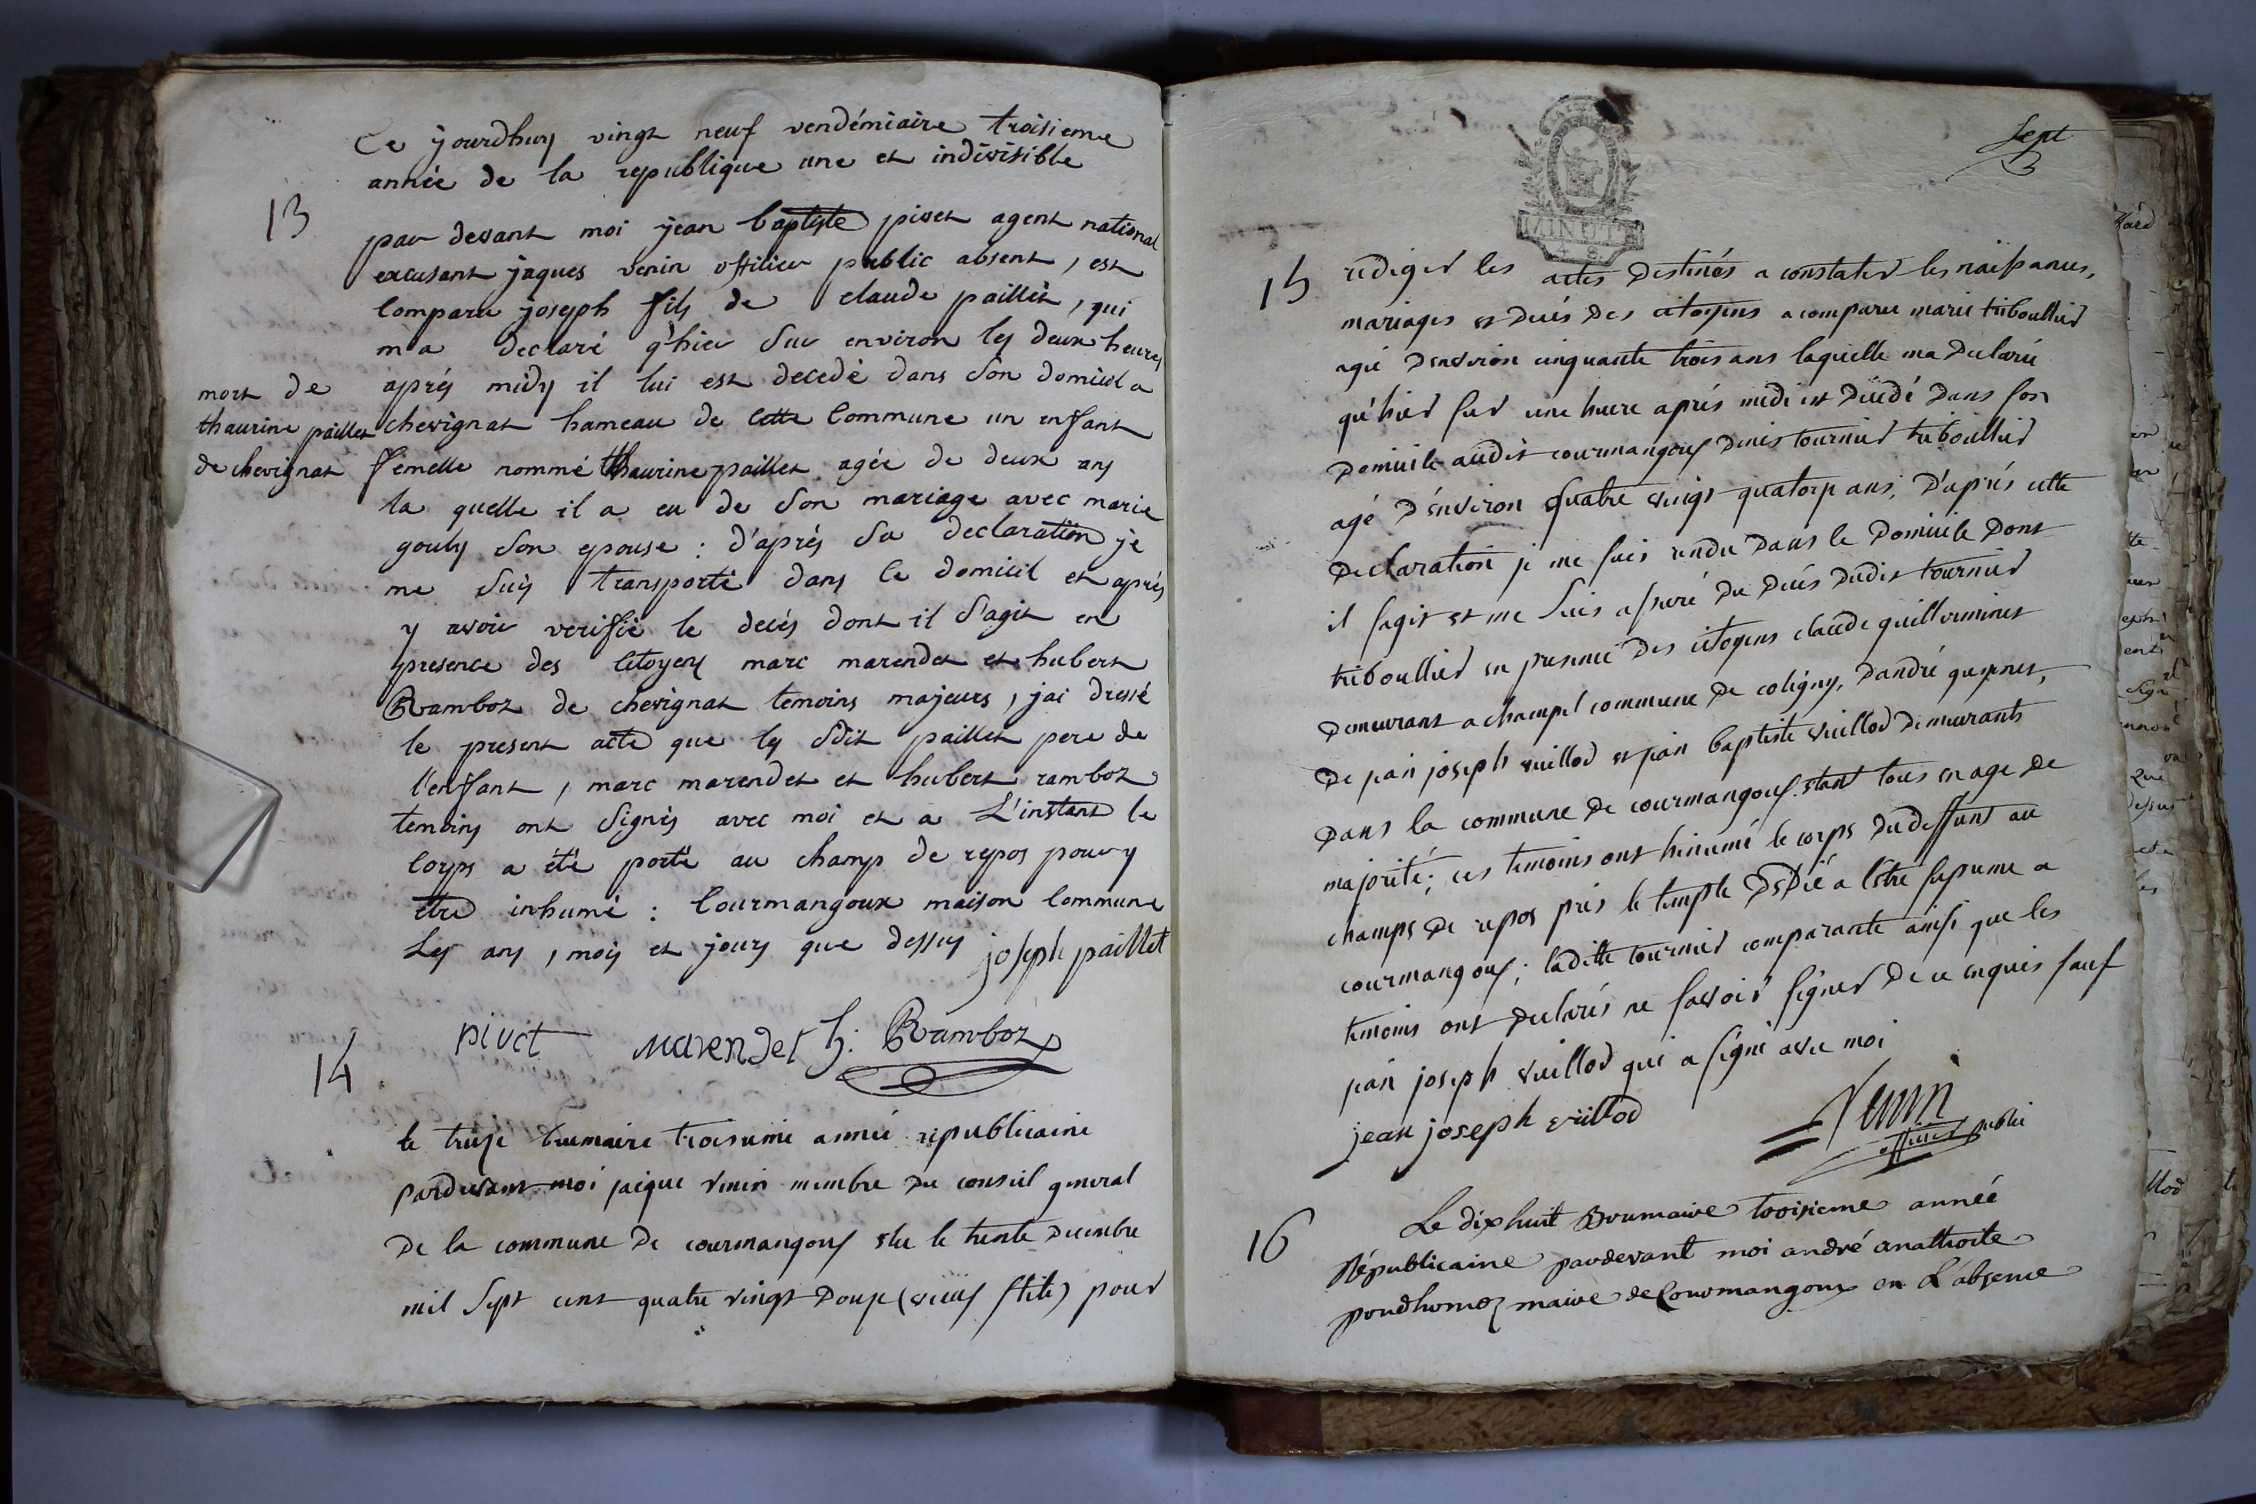 Ce yourdhuy vingt neuf vendémiaire troisieme
année de la republique une et indivisible
13
par devant moi jean baptiste pivet agent national
excusant jaques venin officier public absent, est
comparu joseph fils de claude paillet, qui
m'a declaré q'hier sur environ les deux heures
aprés midy il lui est decedé dans son domicil a
chevignat hameau de cette commune un enfant
femelle nommé thaurine paillet agée de deux ans
mort de
thaurine paillet
de chevignat
la quelle il a eu de son mariage avec marie
gouly son epouse : d'aprés sa declaration je
me suis transporté dans le domicil et aprés
y avoir verifié le decés dont il s'agit en
presence des citoyens marc marendet et hubert
Ramboz de chevignat temoins majeurs, jai dressé
le present acte que les sdit paillet pere de
l'enfant, marc marendet et hubert ramboz
temoins ont signés avec moi et a L'instant le
corps a été porté au champ de repos pour y
etre inhumé : Courmangoux maison commune
Les ans, mois et jours que dessus joseph paillet
pivet marendet h. Ramboz
14
le treize brumaire troisieme année republicaine
pardevant moi jacque venin membre du conseil general
de la commune de courmangoux élu le trente decembre
mil sept cent quatre vingt douze (vieux stile) pour
Sept
MINUTE
15
rediger les actes destinés a constater les naissances,
mariages et decés des citoyens a comparu marie triboullier
agé d'environ cinquante trois ans laquelle ma declaré
qu'hier sur une heure aprés midi est décédé dans son
domicile audit courmangoux denis tournier triboullier
agé d'environ quatre vingt quatorze ans, d'aprés cette
declaration je me suis rendu dans le domicile dont
il sagit et me suis assuré du decés dudit tournier
triboullier en presence des citoyens claude guillerminet
demeurant a champel commune de coligny, d'andré
de jean joseph vuillod et jean baptiste vuillod demeurants
dans la commune de courmangoux étant tous en age de
majorité; ces temoins ont hinumé le corps du deffunt au
champs de repos prés le temple dédié a l'etre supreme a
courmangoux; laditte tournier comparante ainsi que les
temoins ont declarés ne savoir signer de ce enquis sauf
jean joseph vuillod qui a signé avec moi
jean joseph vuillod
Venin
officier public
16
Le dix huit Brumaire troisieme année
Républicaine pardevant moi andré anathoile
prudhomez maire de Courmangoux en L'absence